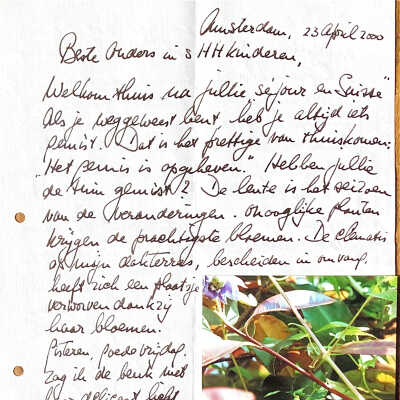 Amsterdam, 23 April 2000
Beste Ouders in 3 HH kinderen,
Welkom thuis na jullie "séjour en Suisse"
Als je weggeweest bent heb je altijd iets
gemist. Dat is het prettige van thuiskomen:
"Het gemis is opgeheven." Hebben jullie
de tuin gemist? De lente is het seizoen
van de veranderingen. Onooglijke planten
krijgen de prachtigste bloemen. De clematis
op mijn dakterras, bescheiden in omvang,
heeft zich een plaatsje
verworven dankzij
haar bloemen.
Gisteren, Goede Vrijdag,
zag ik de beuk met
delicaat licht